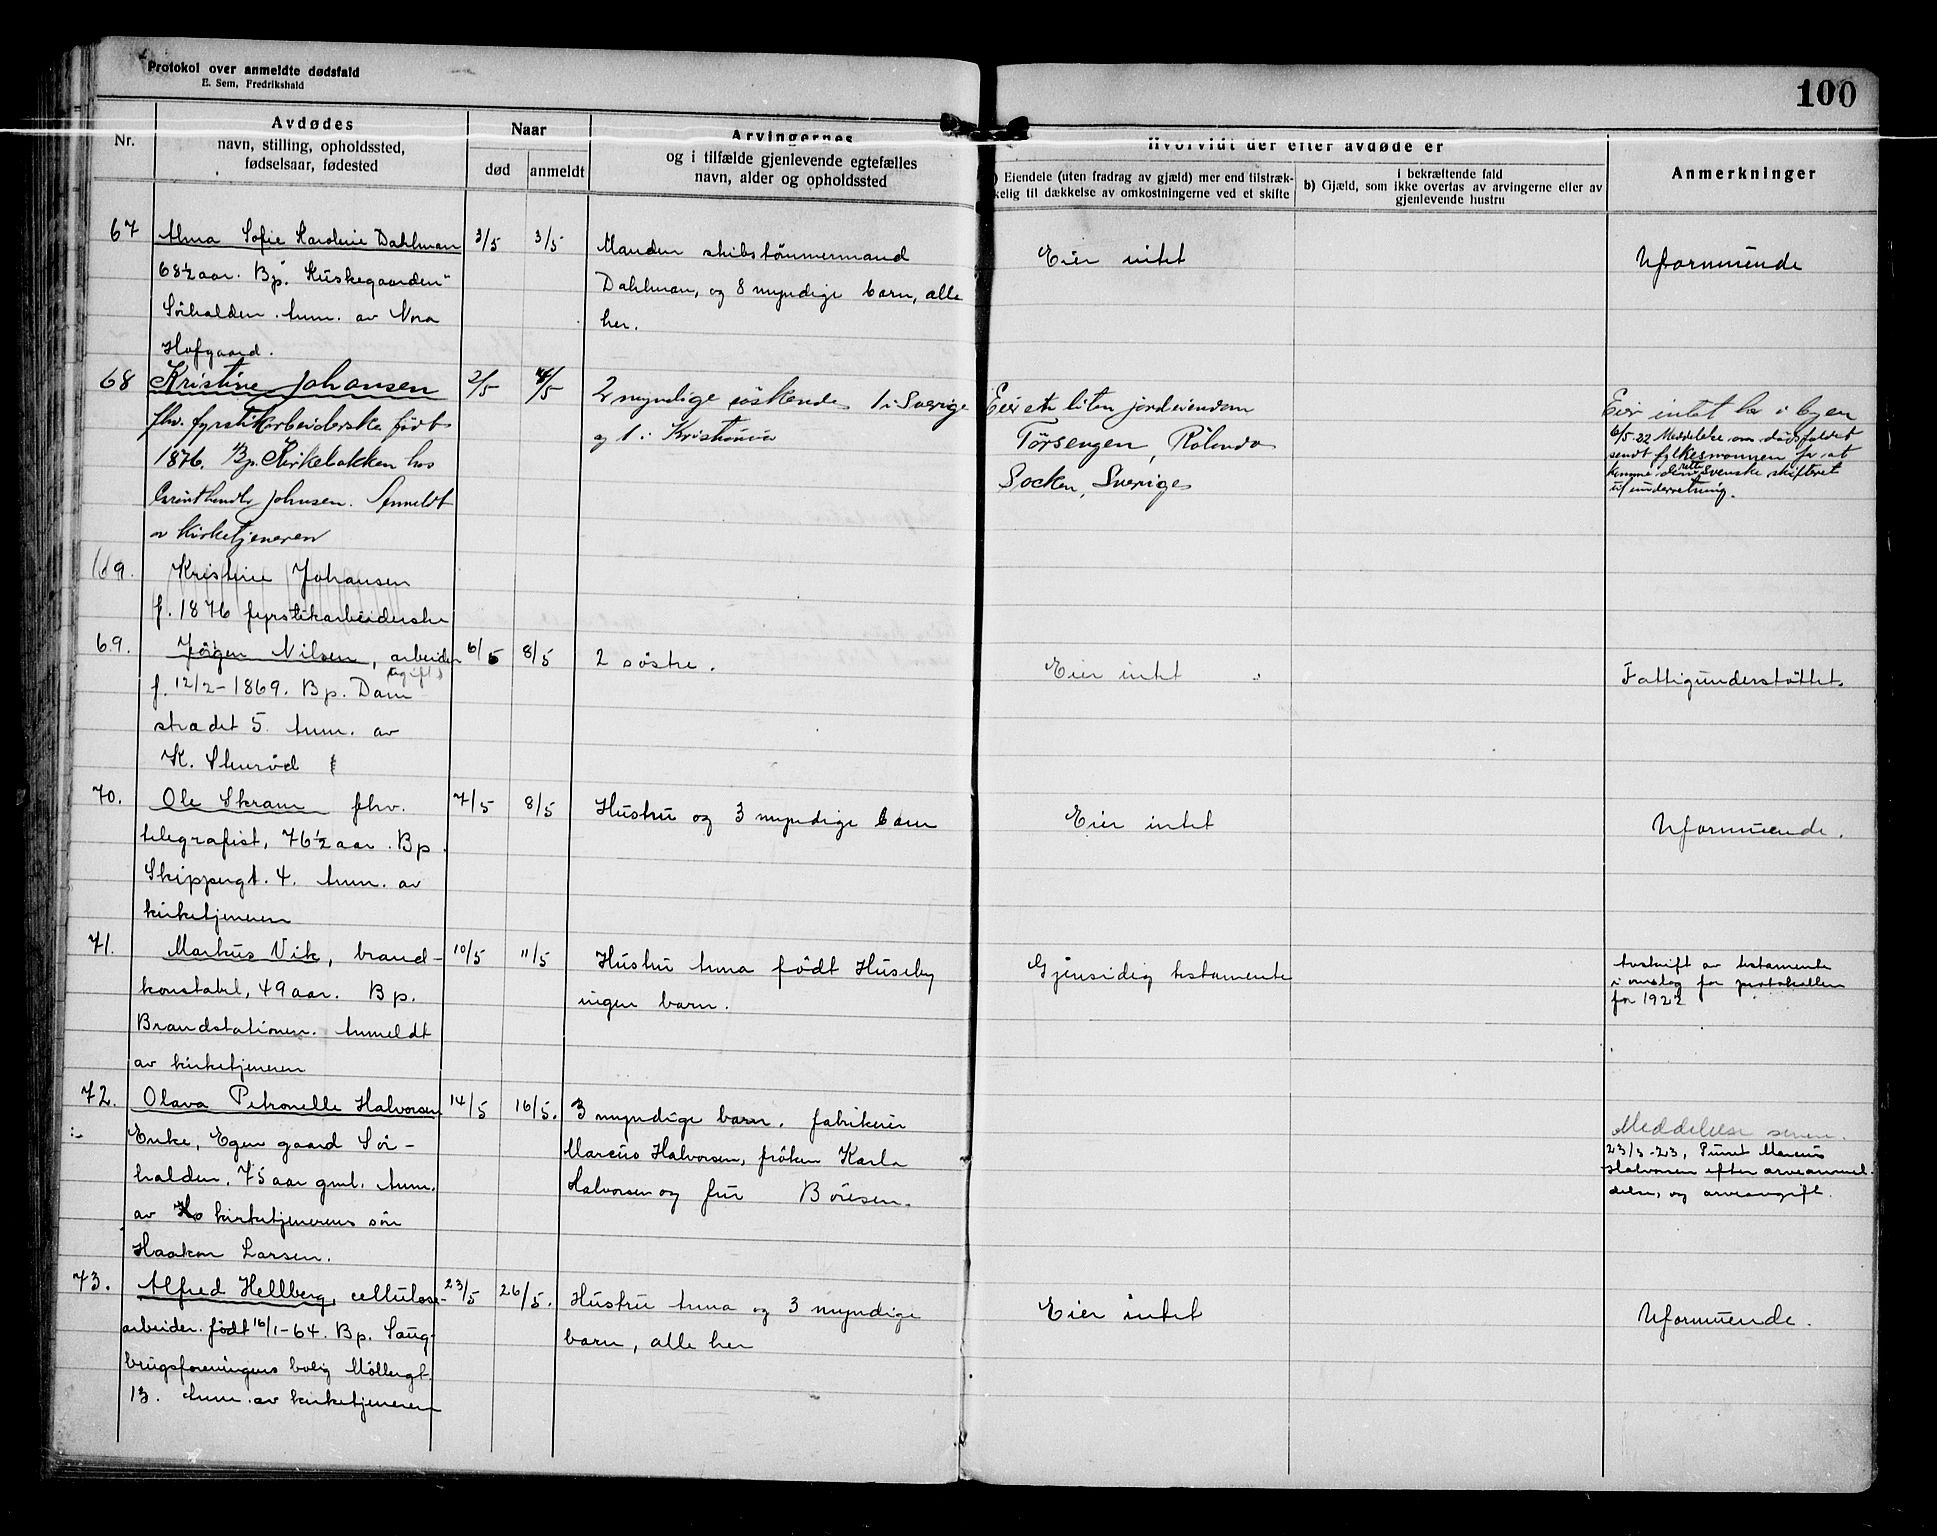 Protokol over anmeldte dødsfald
E. Sem, Fredrikshald
100
Nr.
Avdødes
navn, stilling, opholdssted,
fødselsaar, fødested
Naar
død
anmeldt
Arvingernes
og i tilfælde gjenlevende egtefælles
navn, alder og opholdssted
Hvorvidt der efter avdøde er
) Eiendele (uten fradrag av gjæld) mer end tilstræk-
kelig til dækkelse av omkostningerne ved et skifte
i bekræftende fald
b) Gjæld, som ikke overtas av arvingerne eller av
gjenlevende hustru
Anmerkninger
67
Alma Sofie Karoline Dahlman
68½ aar. Bp. "Kuskegaarden"
Sörhalden. Anm. av Nora
Hofgaard.
3/5
3/5
Manden skibstömmermand
Dahlman, og 8 myndige barn, alle
her.
Eier intet
Uformuende
68
Kristine Johansen
fhv. fyrstikarbeiderske födt
1876. Bp. Kirkebakken hos
Johnsen. Anmeldt
av Kirketjeneren
2/5
4/5
2 myndige söskende 1 i Sverige
og 1 i Kristiania
Eier et liten jordeiendom
Törsengen, Rölanda
Socken, Sverige
Eier intet her i byen
6/5-22 Meddelelse om dödsfaldet
sendt fylkesmannen for at
komme den rette svenske skifteret
til underretning.
169.
Kristine Johansen
f. 1876 fyrstikarbeiderske
69.
Jörgen Nilsen, arbeider
ugift
f. 12/2-1869. Bp. Dam
strædet 5. Anm. av
K. Skuröd
6/5
8/5
2 söstre.
Eier intet
Fattigunderstöttet.
70.
Ole Skram fhv.
telegrafist, 76½ aar. Bp.
Skippergt. 4. Anm. av
kirketjeneren
7/5
8/5
Hustru og 3 myndige barn
Eier intet
Uformuende.
71.
Markus Vik, brand-
konstabel, 49 aar. Bp.
Brandstationen. Anmeldt
av kirketjeneren
10/5
11/5
Hustru Anna födt Huseby
ingen barn.
Gjensidig testamente
Avskrift av testamente
i omslag for protokollen
for 1922
72.
Olava Petronelle Halvorsen
Enke, Egen gaard Sör-
halden, 75 aar gml. Anm.
av kirketjenerens sön
Haakon Larsen.
14/5
16/5.
3 myndige barn. fabrikeier
Marcus Halvorsen, fröken Karla
Halvorsen og fru Böiesen.
Meddelelse senere.
23/3-23, Purret Marcus
Halvorsen efter arveanmel-
delse, og arveavgift.
73.
Alfred Hellberg, cellulose-
arbeider. födt 16/1-64. Bp. Saug-
brugsforeningens bolig Möllergt.
13. Anm. av kirketjeneren
23/5
26/5.
Hustru Anna og 3 myndige
barn, alle her
Eier intet
Uformuende.